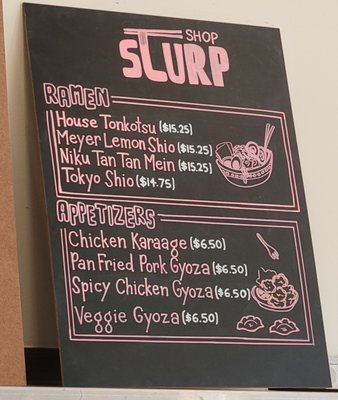 SLURP SHOP
RAMEN
House Tonkotsu ($15.25)
Meyer Lemon Shio ($15.25)
Niku Tan Tan Mein ($15.25)
Tokyo Shio ($14.75)
APPETIZERS
Chicken Karaage ($6.50)
Pan Fried Pork Gyoza ($6.50)
Spicy Chicken Gyoza ($6.50)
Veggie Gyoza ($6.50)